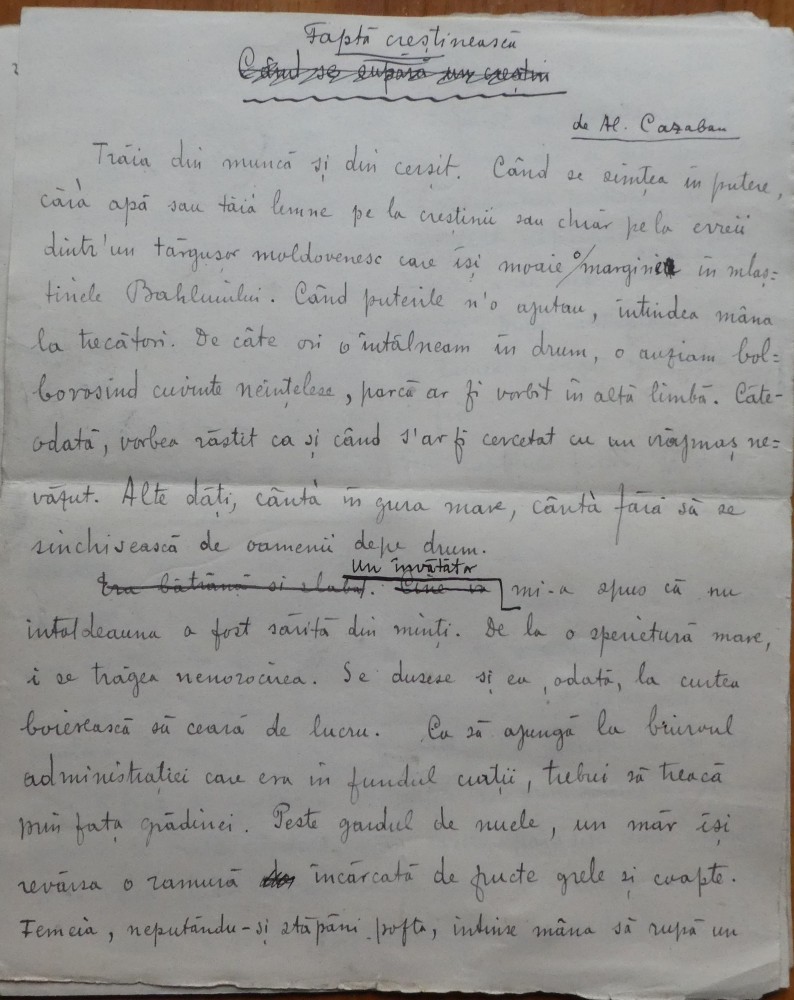 Faptă creștinească
Când se supără un creștin
de Al. Cazaban
Trăia din muncă și din cerșit. Când se simțea în putere,
căra apă sau tăia lemne pe la creștinii sau chiar pe la evreii
dintr'un târgușor moldovenesc care își moaie o margine în mlaș=
tinele Bahluiului. Când puterile n'o ajutau, întindea mâna
la trecători. De câte ori o întâlneam în drum, o auziam bol=
borosind cuvinte neînțelese, parcă ar fi vorbit în altă limbă. Câte-
odată, vorbea răstit ca și când s'ar fi cercetat cu un vrăjmaș ne=
văzut. Alte dăți, cântă în gura mare, cântă fără să se
sinchisească de oamenii depe drum.
Un învățător
Era bătrână și slabă. Cine mi-a spus că nu
întoldeauna a fost sărită din minți. De la o sperietură mare,
i se trăgea nenorocirea. Se dusese și ea, odată, la curtea
boierească să ceară de lucru. Ca să ajungă la biuroul
administrației care era în fundul curții, trebui să treacă
prin fața grădinei. Peste gardul de nuele, un măr își
revărsa o ramură încărcată de fructe grele și coapte.
Femeia, neputându-și stăpâni pofta, întinse mâna să rupă un